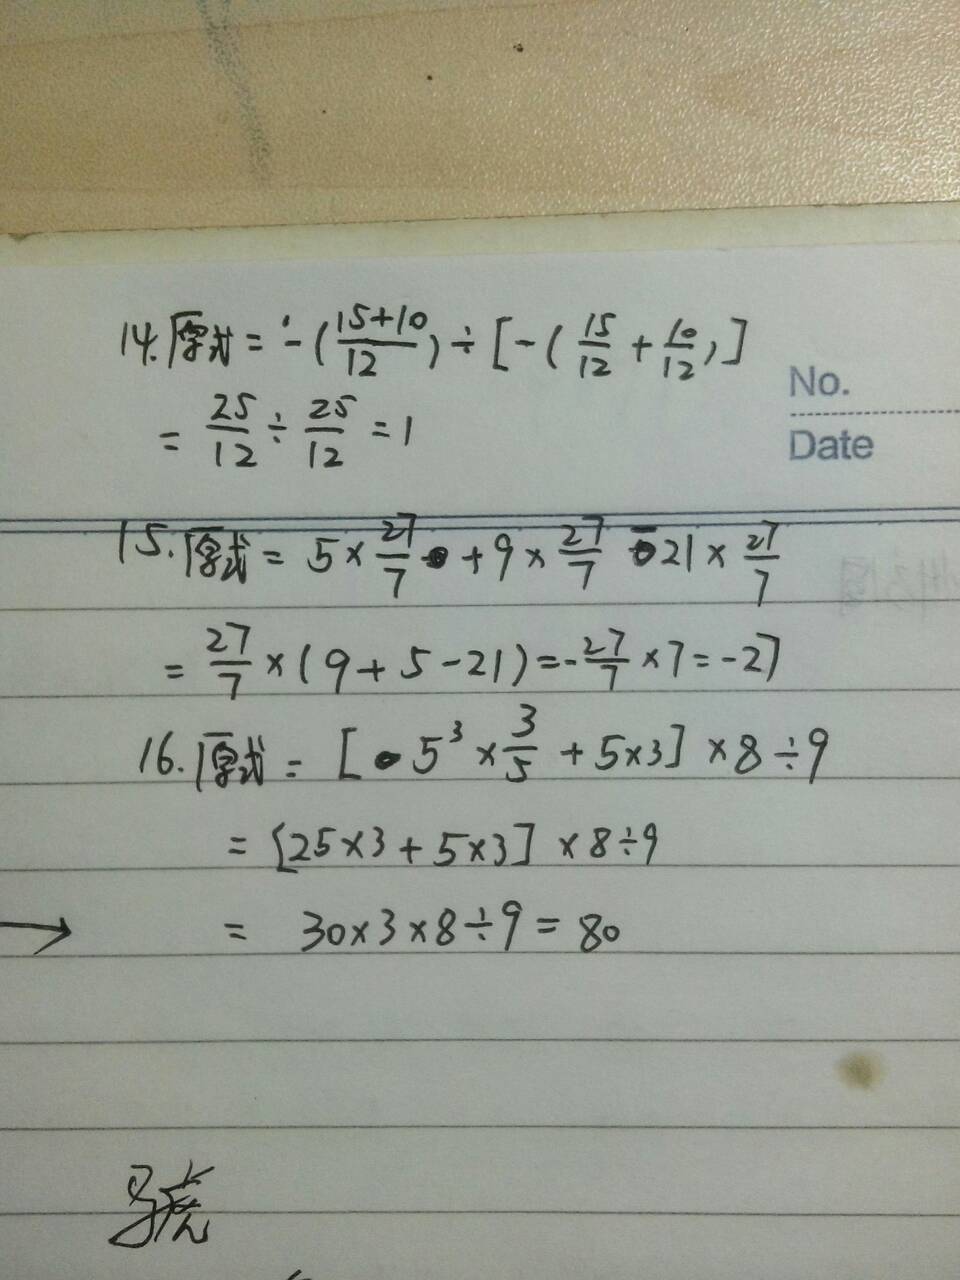 14.原式=-(15+10/12)÷[-(15/12+10/12)]
No.
=25/12÷25/12=1
Date
15.原式=5×27/7+9×27/7-21×27/7
=27/7×(9+5-21)=-27/7×7=-27
16.原式=[5³×3/5+5×3]×8÷9
=[25×3+5×3]×8÷9
→ =30×3×8÷9=80